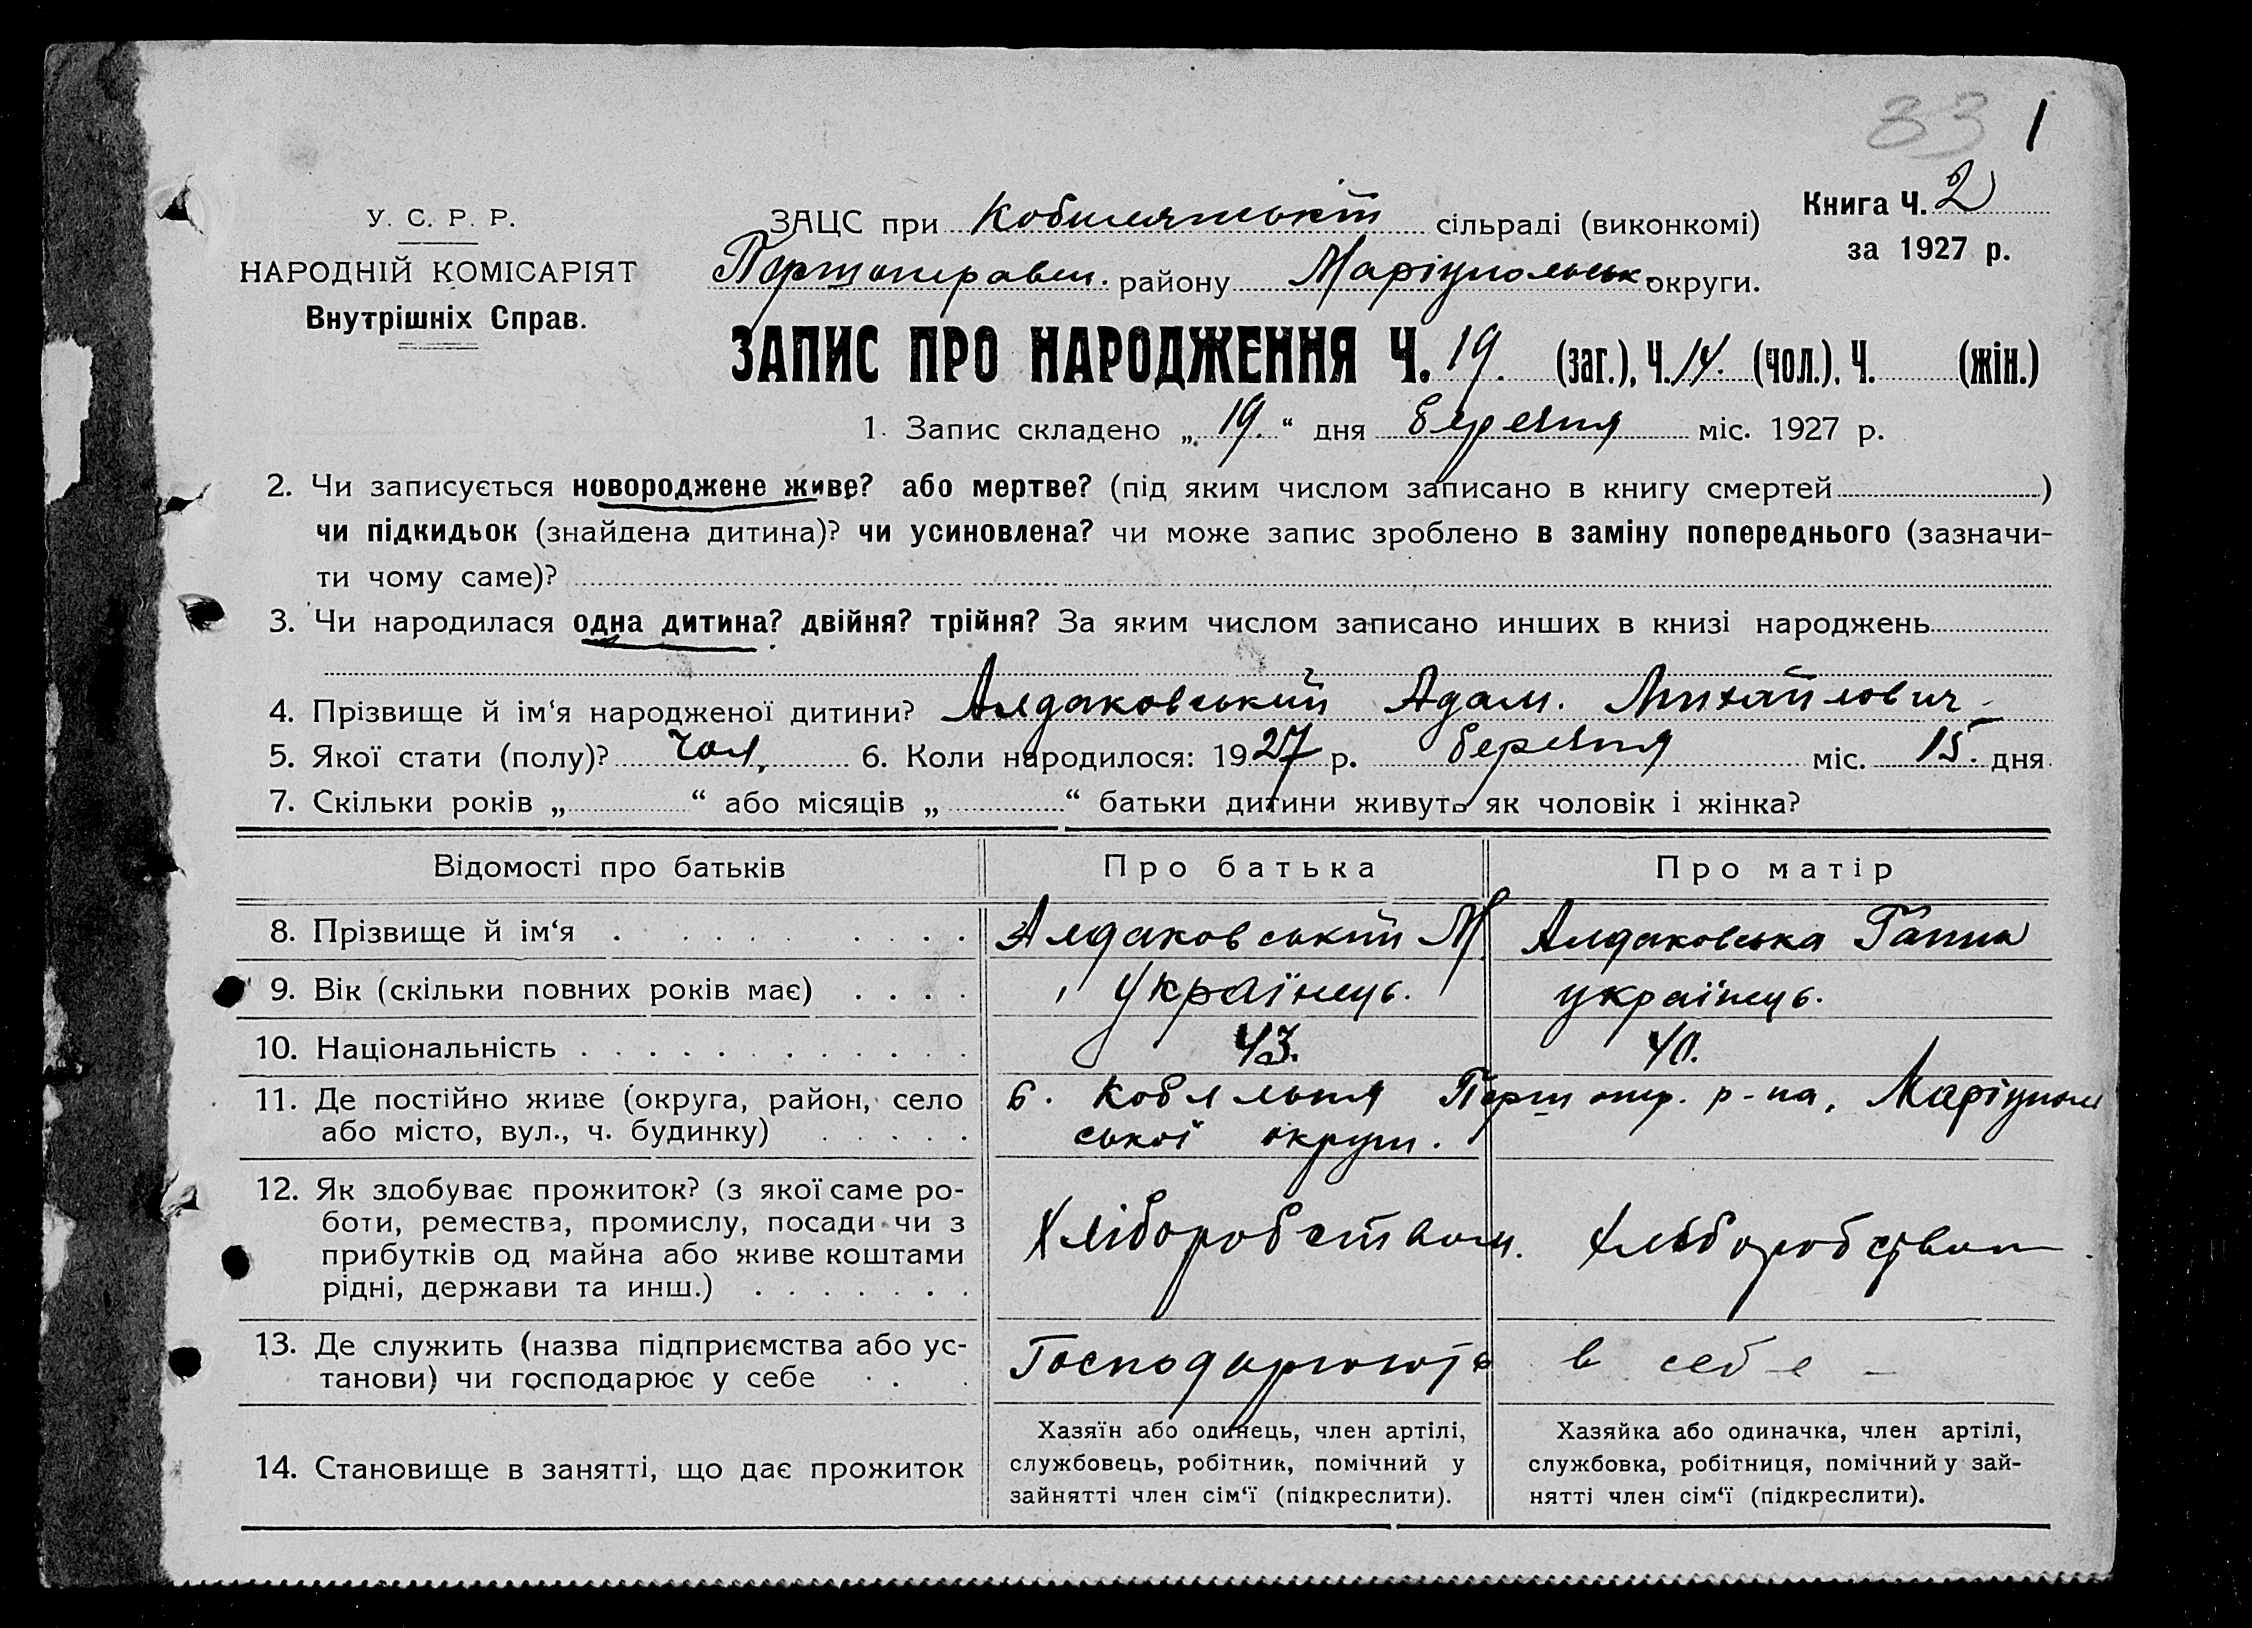 33 1
У. С. Р. Р.
НАРОДНІЙ КОМІСАРІЯТ
Внутрішніх Справ.
ЗАЦС при сільраді (виконкомі)
Першотравен. району Маріупольськ округи.
Книга Ч. 2
за 1927 р.
ЗАПИС ПРО НАРОДЖЕННЯ Ч. 19. (заг.), Ч. 14. (чол.), Ч. (жін.)
1. Запис складено „ 19. “ дня березня міс. 1927 р.
2. Чи записується новороджене живе? або мертве? (під яким числом записано в книгу смертей )
чи підкидьок (знайдена дитина)? чи усиновлена? чи може запис зроблено в заміну попереднього (зазначи-
ти чому саме)?
3. Чи народилася одна дитина? двійня? трійня? За яким числом записано инших в книзі народжень
4. Прізвище й ім‘я народженої дитини? Алдаковський Адам. Михайлович
5. Якої стати (полу)? чол, 6. Коли народилося: 1927 р. березня міс. 15. дня
7. Скільки років „ “ або місяців „ “ батьки дитини живуть як чоловік і жінка?
Відомості про батьків Про батька Про матір
8. Прізвище й ім‘я Алдаковський М Алдаковська Ганна
9. Вік (скільки повних років має) українець. українець.
10. Національність 43. 40.
11. Де постійно живе (округа, район, село
або місто, вул., ч. будинку)
Першотр. р-на, Маріуполь
ської округи.
12. Як здобуває прожиток? (з якої саме ро-
боти, ремества, промислу, посади чи з
прибутків од майна або живе коштами
рідні, держави та инш.)
Хліборобством. хліборобством
13. Де служить (назва підприємства або ус-
танови) чи господарює у себе
Господарюють в себе
14. Становище в занятті, що дає прожиток
Хазяїн або одинець, член артілі,
службовець, робітник, помічний у
зайнятті член сім‘ї (підкреслити).
Хазяйка або одиначка, член артілі,
службовка, робітниця, помічний у зай-
нятті член сім‘ї (підкреслити).